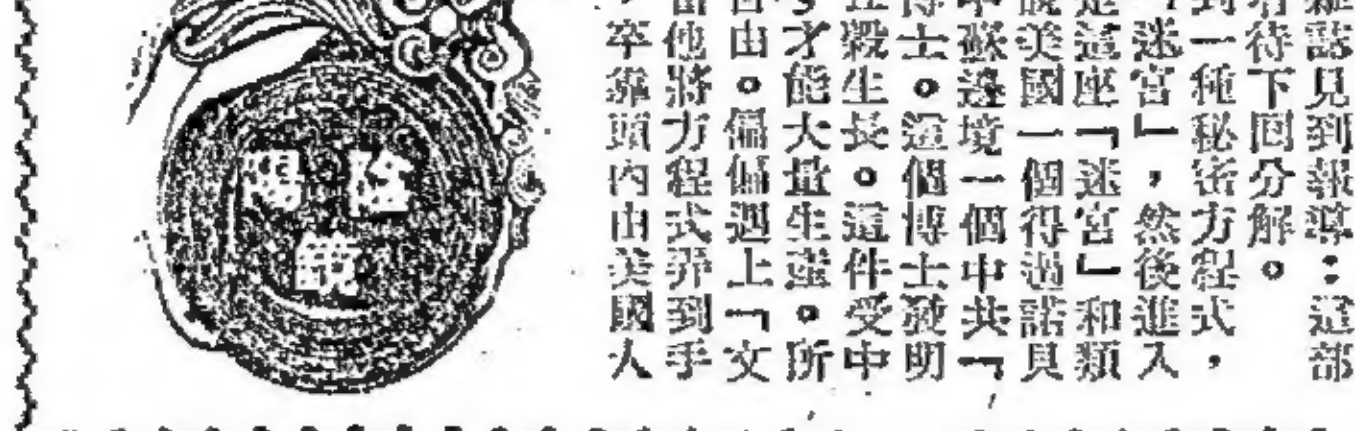 雜誌見到報導：這部
有待下回分解。
到一種秘密方程式，
迷宮」，然後進入
是這座「迷宮」和類
說美國一個得過諾貝
中蘇邊境一個中共「
博士。這個博士發明
五穀生長。這件受中
才能大量生產。所
自由。偏偏遇上「文
當他將方程式弄到手
，卒靠頭內由美國人
陰陽
鏡